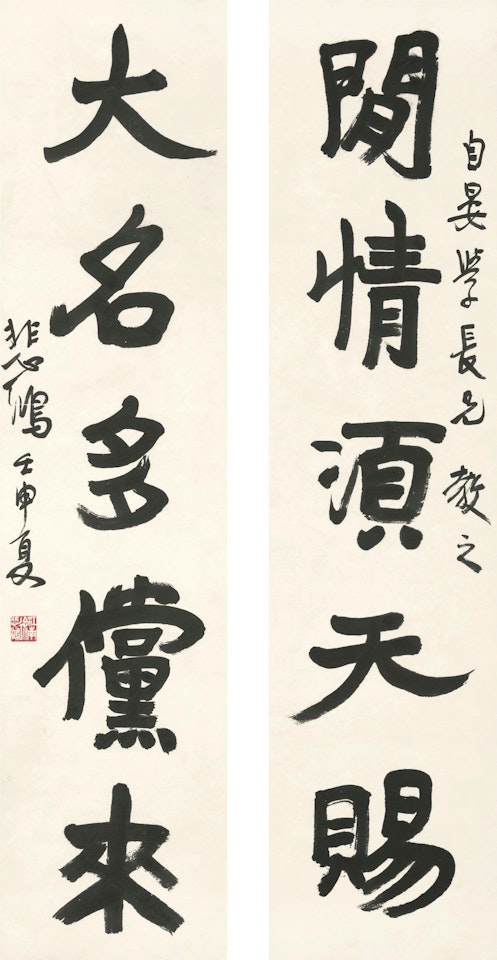 自晏學長兄 教之
閒情湏天賜
大名多儻來
悲鴻 壬申夏